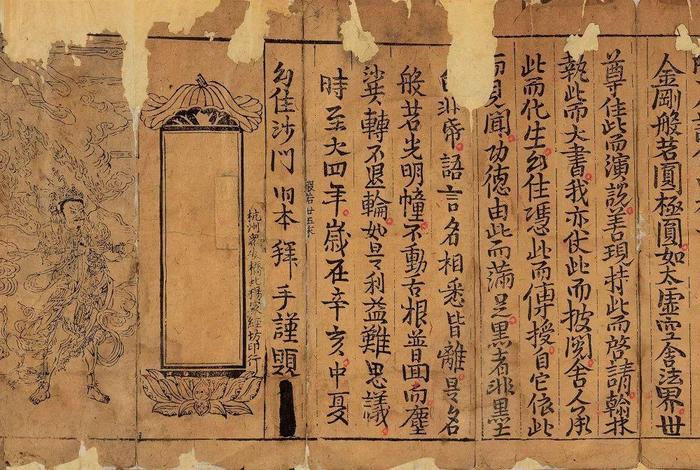 金剛般若圓極圓如太虛空含法界世
尊住此而演說善現持此而啓請翰林
執此而大書我亦仗此而披閱舍人承
此而化生幻住憑此而傳授自它依此
而見聞功德由此而滿足黑者非墨
白非帋語言名相悉皆離是名
般若光明幢不動舌根普面而塵
沙共轉不退輪如是利益難思議
時至大四年歲在辛亥中夏
幻住沙門 明本 拜手謹題
杭州眾安橋北楊家經坊印行